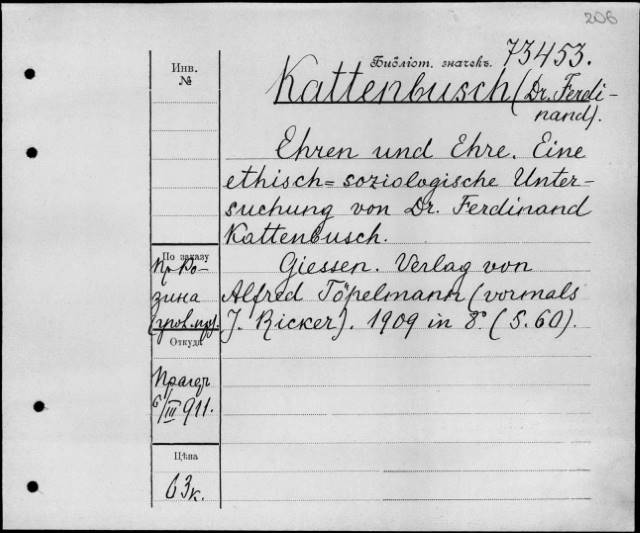 206
Инв.
№
Библіот. значекъ. 73453.
Kattenbusch (Dr. Ferdi-
nand).
Ehren und Ehre. Eine
ethisch=soziologische Unter-
suchung von Dr. Ferdinand
Kattenbusch.
Giessen. Verlag von
Alfred Töpelmann (vormals
J. Ricker). 1909 in 8° (S. 60).
По заказу
Пр. Ро-
зина
Откуда
Прагеръ
6/III 911.
Цѣна
63к.